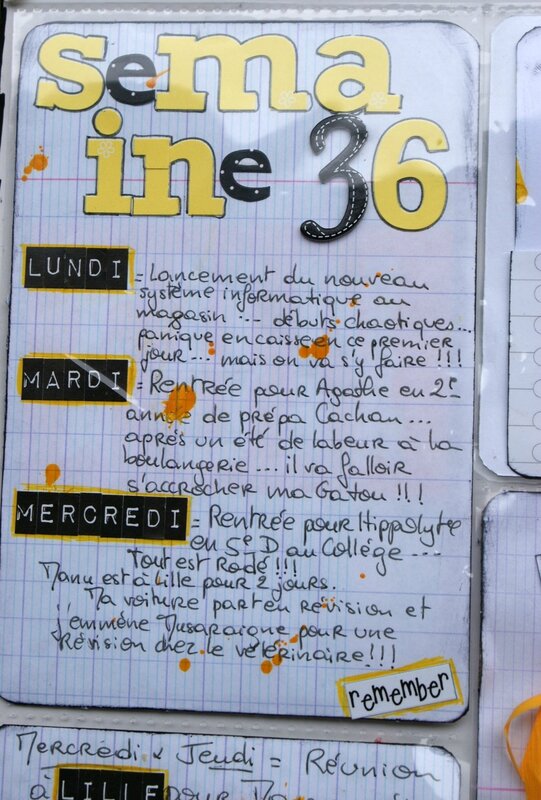 sema
ine 36
LUNDI = Lancement du nouveau
système informatique au
magasin ... débuts chaotiques...
panique en caisse en ce premier
jour... mais on va s'y faire !!!
MARDI = Rentrée pour Agathe en 2e
année de prépa Cachan...
après un été de labeur à la
boulangerie ... il va falloir
s'accrocher ma Gatou !!!
MERCREDI = Rentrée pour Hippolyte
en 5e D au Collège ...
Tout est Rodé !!!
Manu est à Lille pour 2 jours.
Ma voiture part en révision et
j'emmène Musaraigne pour une
Révision chez le vétérinaire !!!
remember
Mercredi & Jeudi = Réunion
à LILLE pour